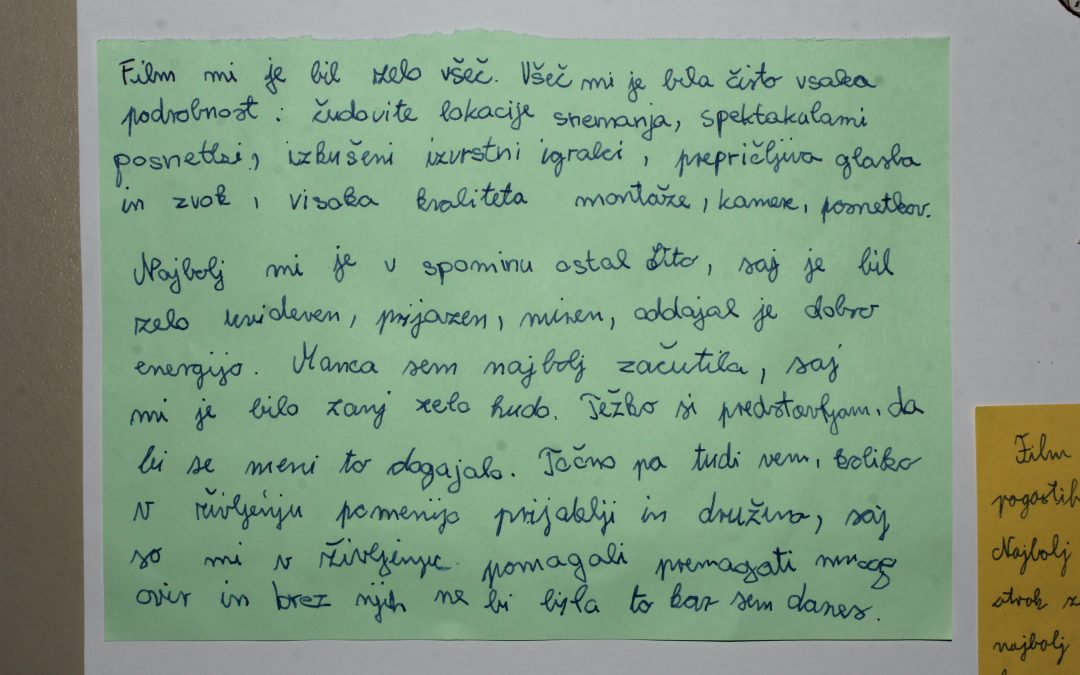 Film mi je bil zelo všeč. Všeč mi je bila čisto vsaka
podrobnost: čudovite lokacije snemanja, spektakularni
posnetki, izkušeni izvrstni igralci, prepričljiva glasba
in zvok, visoka kvaliteta montaže, kamere, posnetkov.
Najbolj mi je v spominu ostal Dito, saj je bil
zelo uvideven, prijazen, miren, oddajal je dobro
energijo. Manca sem najbolj začutila, saj
mi je bilo zanj zelo hudo. Težko si predstavljam, da
bi se meni to dogajalo. Točno pa tudi vem, koliko
v življenju pomenijo prijatelji in družina, saj
so mi v življenju pomagali premagati mnogo
ovir in brez njih ne bi bila to kar sem danes.
Film
pogostih
Najbolj
otrok z
najbolj